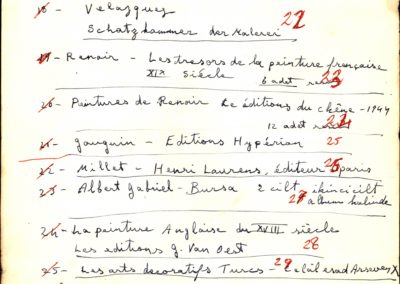 18 - Velazquez 22
Schatzkammer der Malerei
19 - Renoir - Les tresors de la peinture française
XIX siècle 6 adet 23
20 - Peintures de Renoir Le éditions du chêne - 1944
12 adet
21 - Gauguin - Editions Hypérion 25
22 - Millet - Henri Laurens, éditeur paris 26
23 - Albert Gabriel - Bursa 2 cilt ikinci cilt
27 album halinde
24 - La peinture Anglaise du XVIII siècle
Les editions G. Van Oest 28
25 - Les arts decoratifs Turcs - 29 Celâl esad Arseven